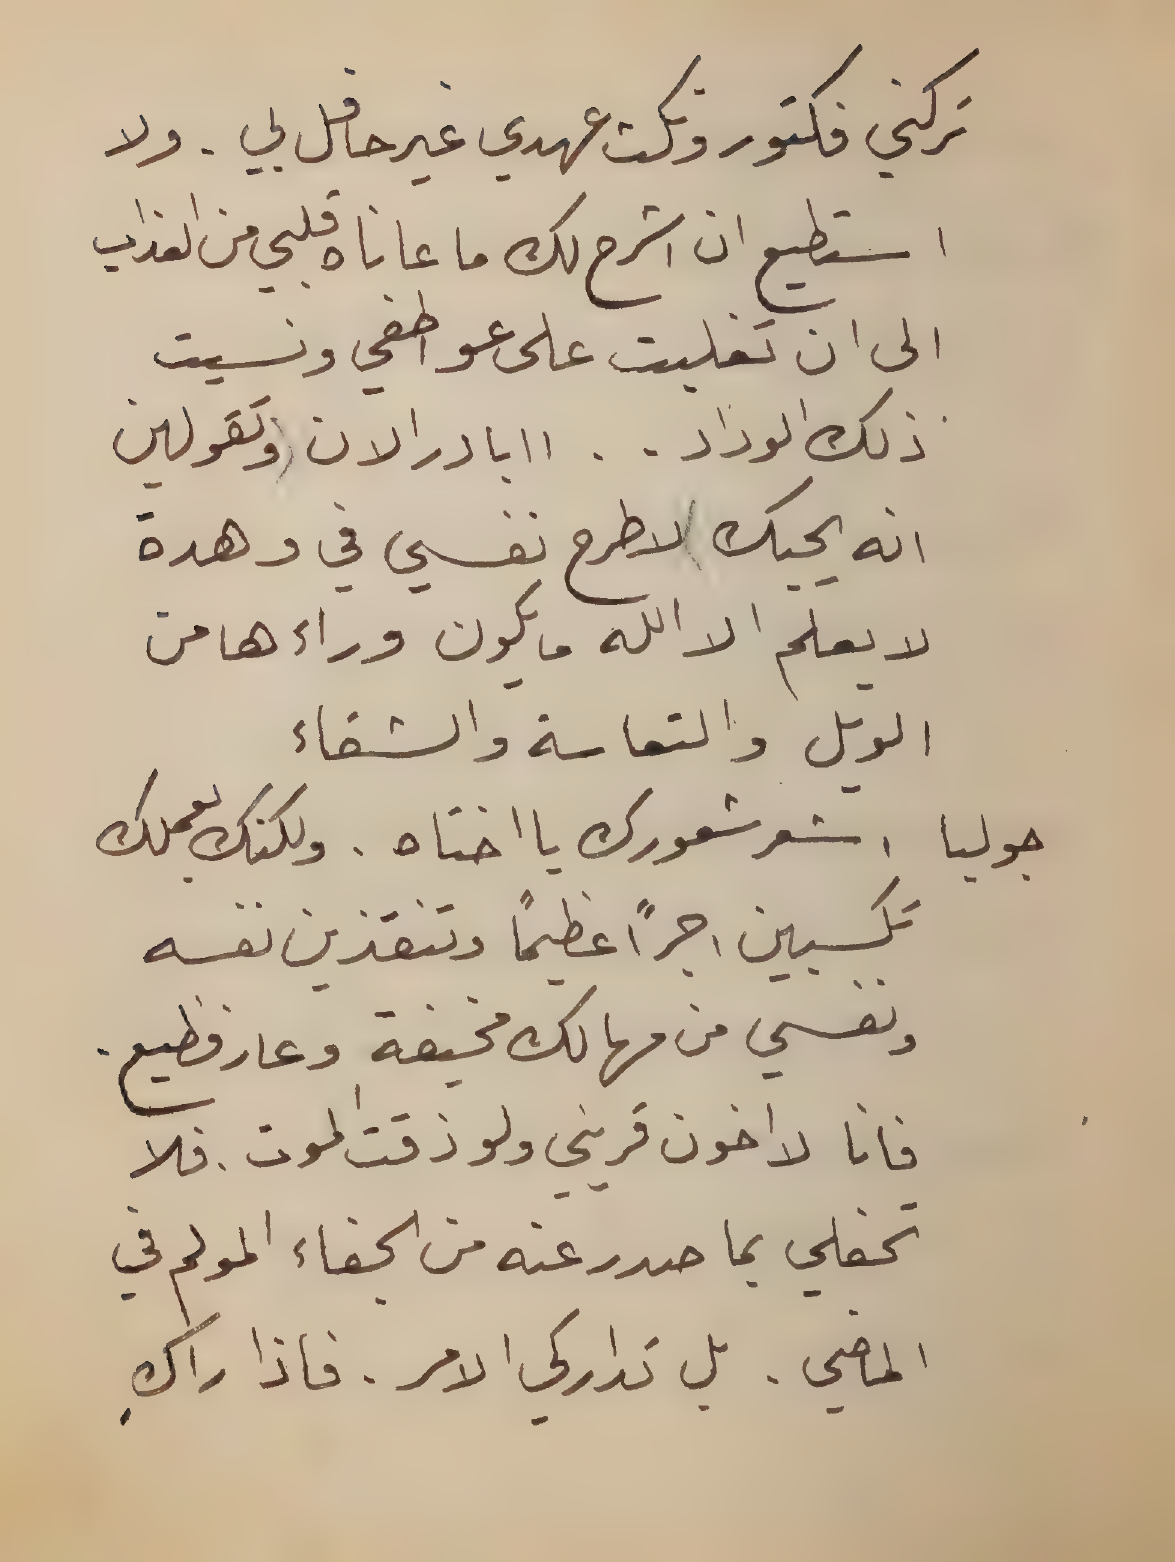 تركني فكتور ونكث عهدي غير حافل بي . ولا
استطيع ان اشرح لك ما عاناه قلبي من العذاب
الى ان تغلبت على عواطفي ونسيت
ذلك الوداد . . اابادر الان (وتقولين
انه يحبك) لاطرح نفسي في وهدة
لا يعلم الا الله ما يكون وراءها من
الويل والتعاسة والشقاء
جوليا اشعر شعورك يا اختاه . ولكنك بعملك
تكسبين اجرًا عظيمًا وتنقذين نفسه
ونفسي من مهالك مخيفة وعار فظيع .
فانا لا اخون قريني ولو ذقت الموت . فلا
تحفلي بما صدر عنه من الجفاء المولم في
الماضي . بل تداركي الامر . فاذا راكِ